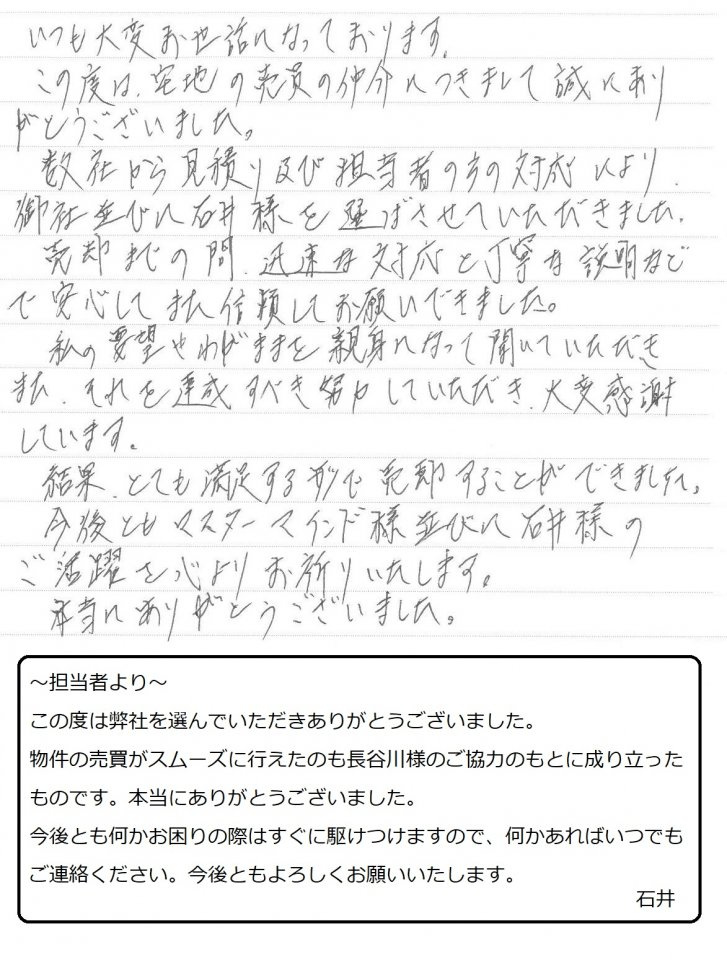 いつも大変お世話になっております。
この度は、宅地の売買の仲介につきまして誠にあり
がとうございました。
数社から見積り及び担当者の方の対応により、
御社並びに石井様を選ばさせていただきました。
売却までの間、迅速な対応と丁寧な説明など
で安心してまた信頼してお願いできました。
私の要望やわがままを親身になって聞いていただき
また、それを達成すべき努力していただき、大変感謝
しています。
結果、とても満足する形で売却することができました。
今後ともマスターマインド様並びに石井様の
ご活躍を心よりお祈りいたします。
本当にありがとうございました。
～担当者より～
この度は弊社を選んでいただきありがとうございました。
物件の売買がスムーズに行えたのも長谷川様のご協力のもとに成り立った
ものです。本当にありがとうございました。
今後とも何かお困りの際はすぐに駆けつけますので、何かあればいつでも
ご連絡ください。今後ともよろしくお願いいたします。
石井